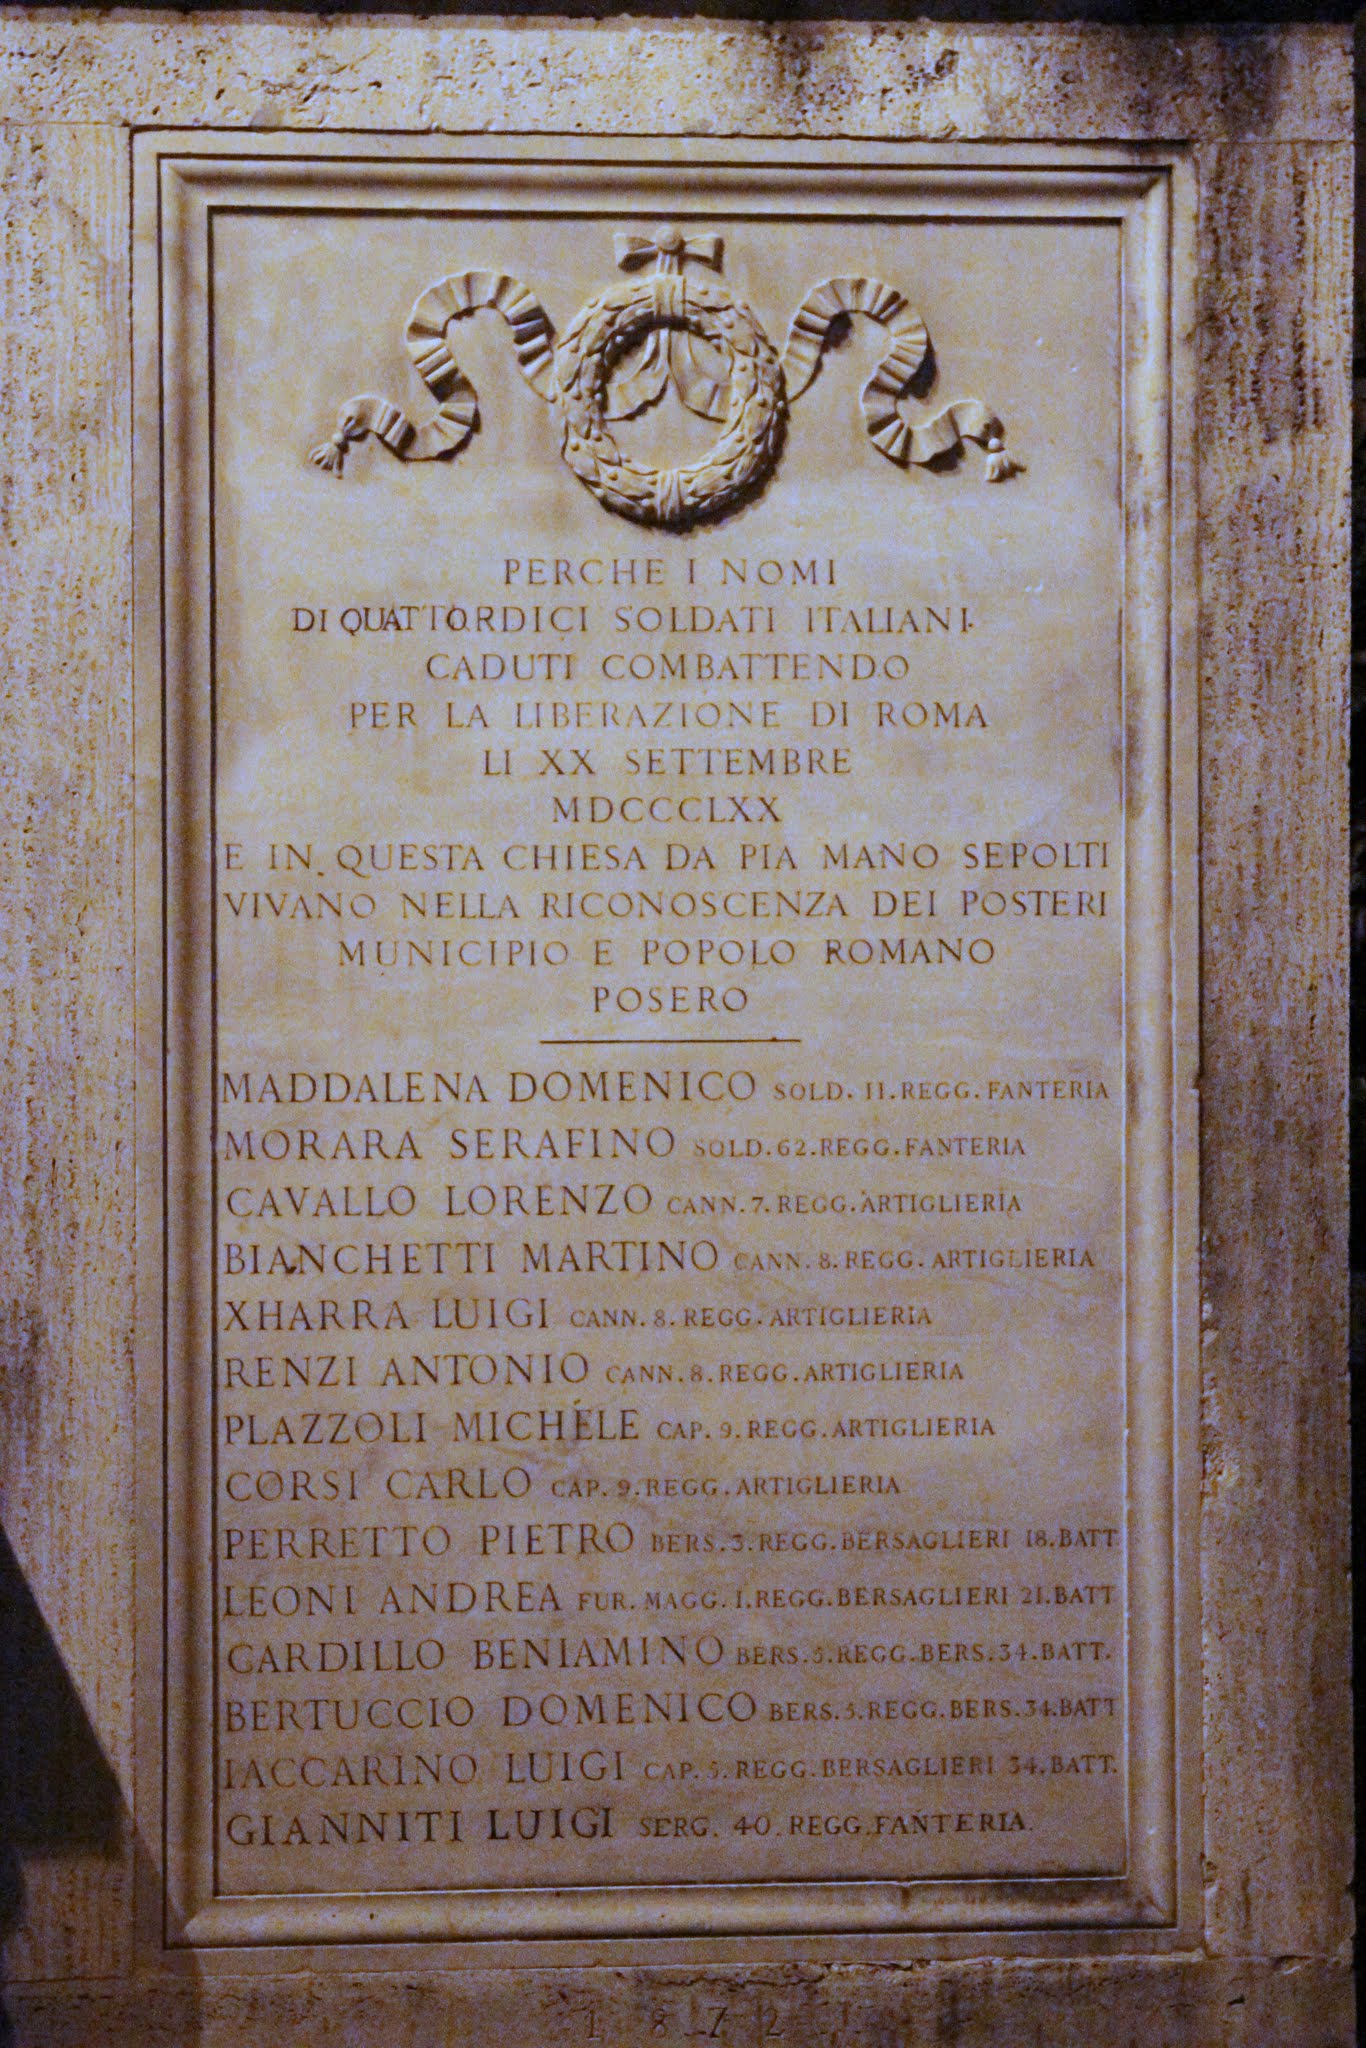 PERCHE I NOMI
DI QUATTORDICI SOLDATI ITALIANI.
CADUTI COMBATTENDO
PER LA LIBERAZIONE DI ROMA
LI XX SETTEMBRE
MDCCCLXX
E IN QUESTA CHIESA DA PIA MANO SEPOLTI
VIVANO NELLA RICONOSCENZA DEI POSTERI
MUNICIPIO E POPOLO ROMANO
POSERO
MADDALENA DOMENICO SOLD. 11. REGG. FANTERIA
MORARA SERAFINO SOLD. 62. REGG. FANTERIA
CAVALLO LORENZO CANN. 7. REGG. ARTIGLIERIA
BIANCHETTI MARTINO CANN. 8. REGG. ARTIGLIERIA
XHARRA LUIGI CANN. 8. REGG. ARTIGLIERIA
RENZI ANTONIO CANN. 8. REGG. ARTIGLIERIA
PLAZZOLI MICHELE CAP. 9. REGG. ARTIGLIERIA
CORSI CARLO CAP. 9. REGG. ARTIGLIERIA
PERRETTO PIETRO BERS. 3. REGG. BERSAGLIERI 18. BATT.
LEONI ANDREA FUR. MAGG. 1. REGG. BERSAGLIERI 21. BATT
CARDILLO BENIAMINO BERS. 5. REGG. BERS. 34. BATT.
BERTUCCIO DOMENICO BERS. 5. REGG. BERS. 34. BATT
IACCARINO LUIGI CAP. 5. REGG. BERSAGLIERI 34. BATT.
GIANNITI LUIGI SERG. 40. REGG. FANTERIA.
1872